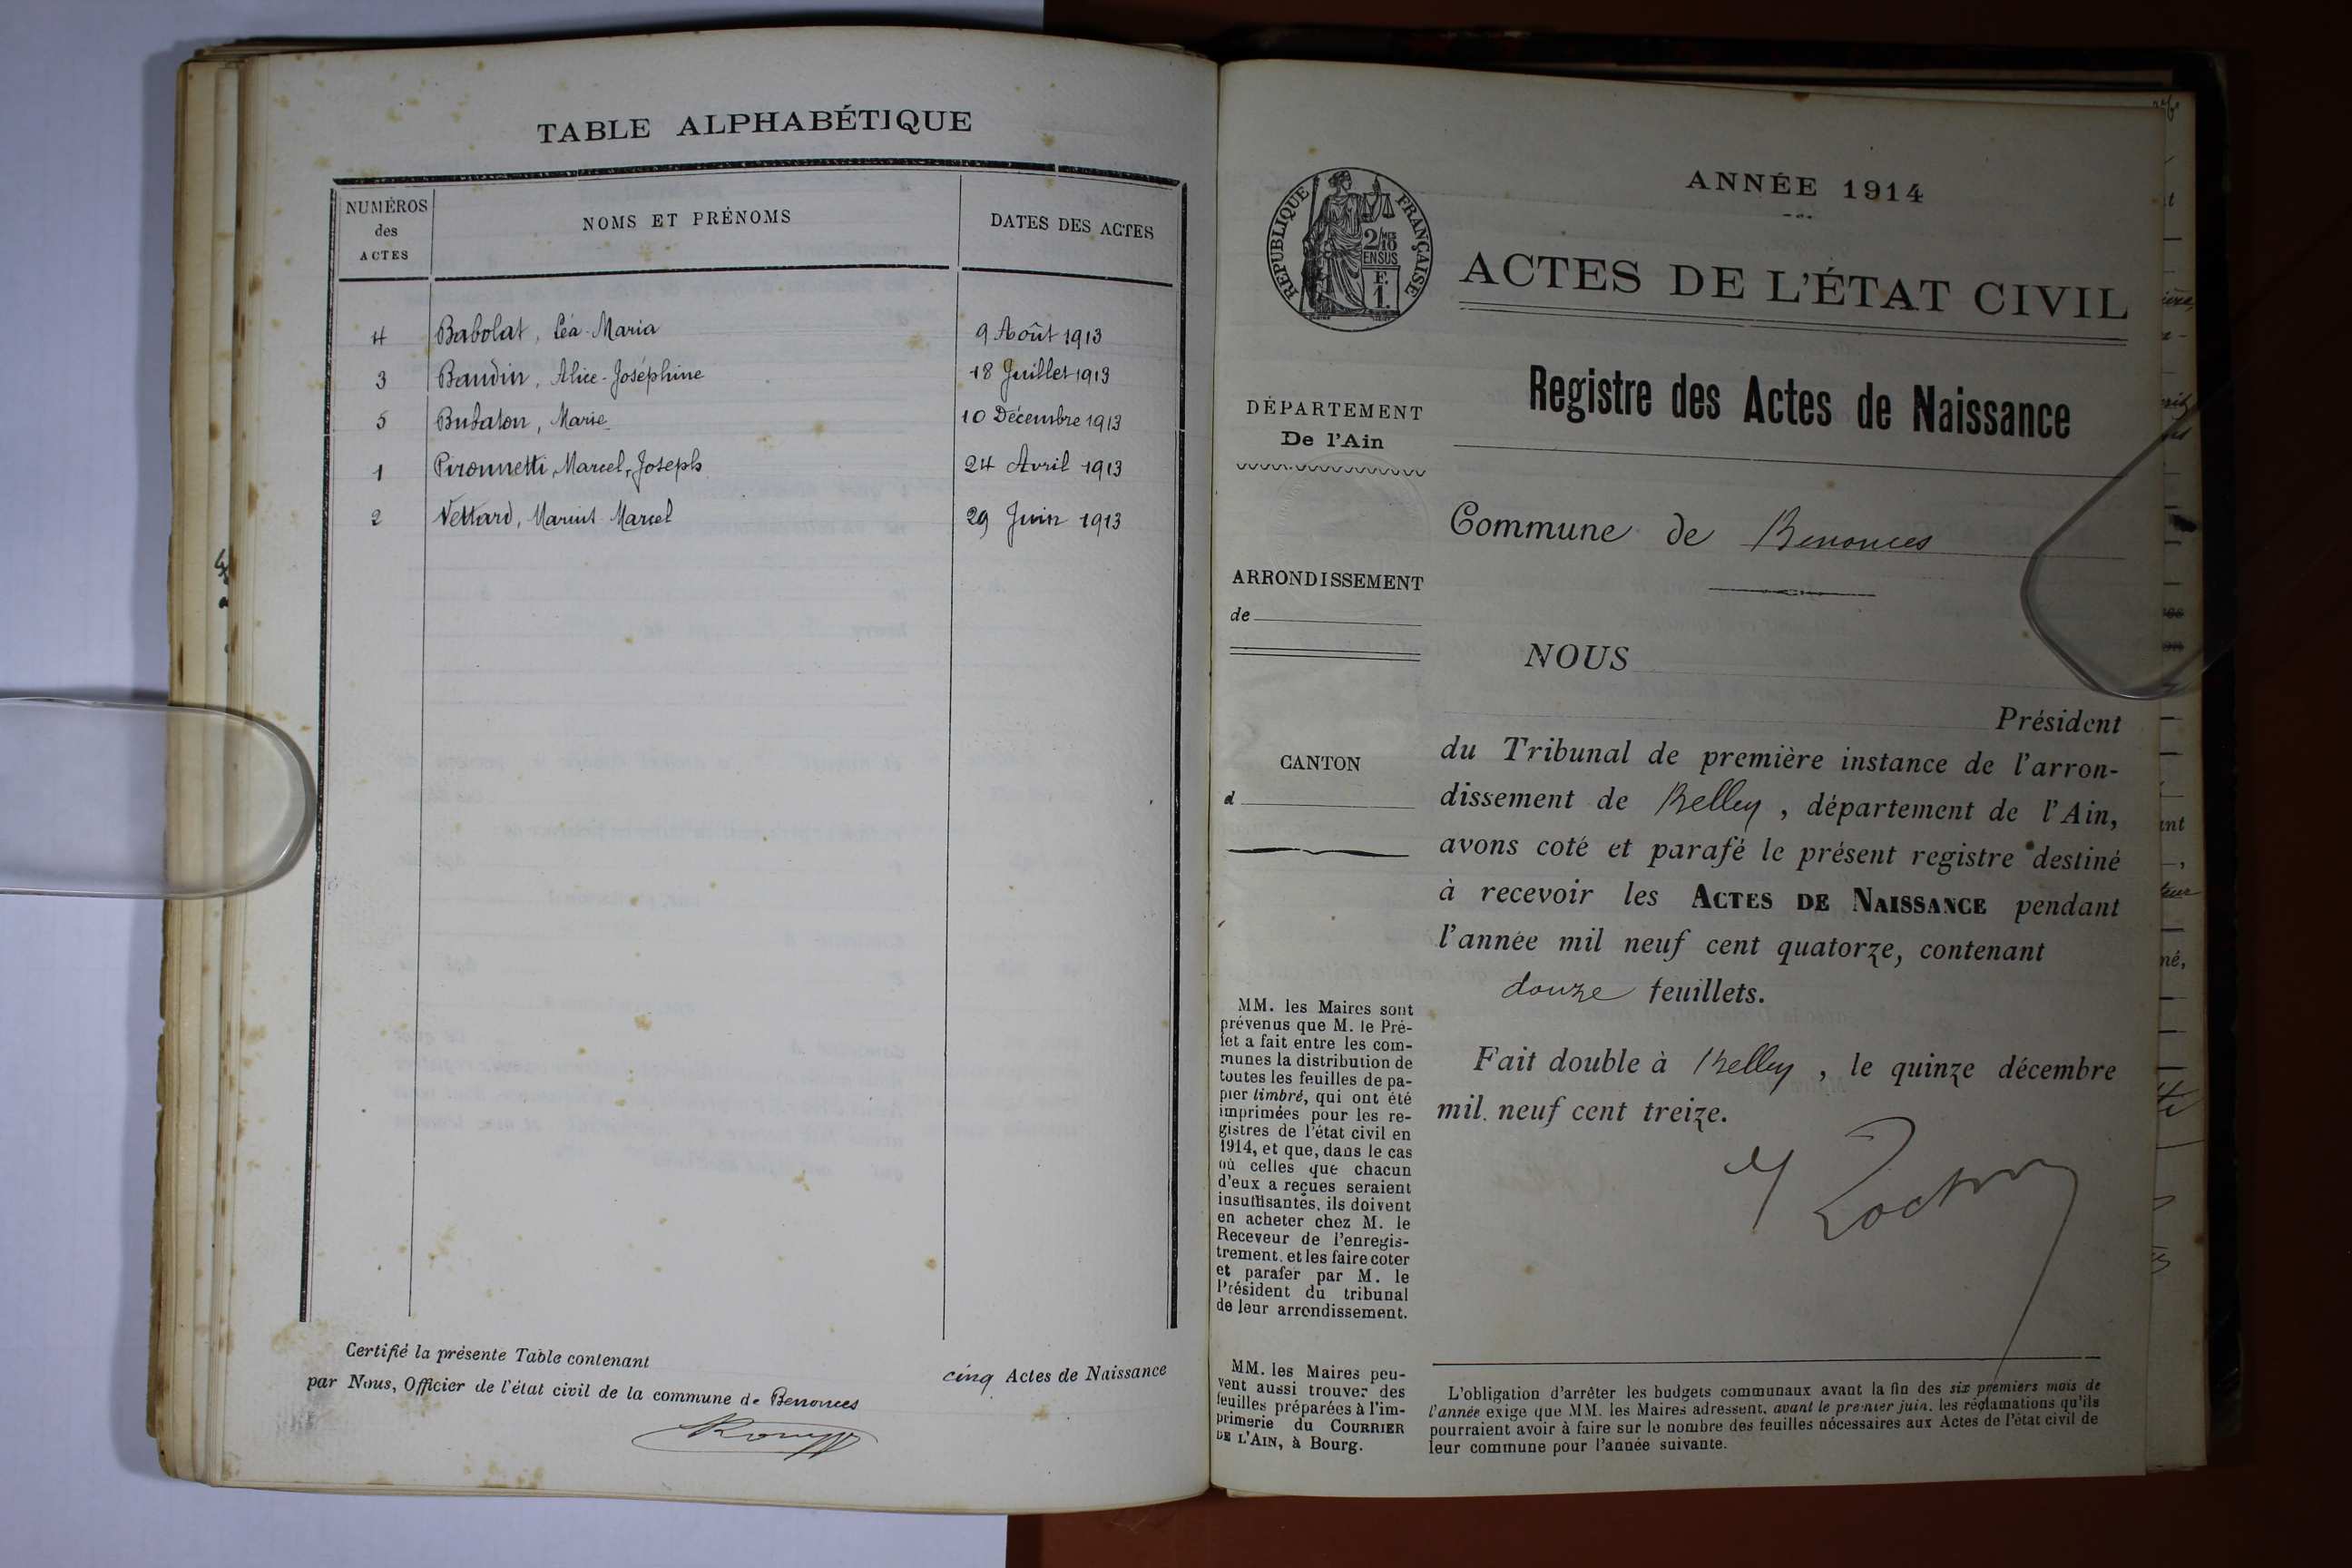 TABLE ALPHABÉTIQUE
NUMÉROS
des
ACTES
NOMS ET PRÉNOMS
DATES DES ACTES
4 Babolat, Léa-Maria 9 Août 1913
3 Baudin, Alice-Joséphine 18 Juillet 1913
5 Bubaton, Marie 10 Décembre 1913
1 Pironnetti, Marcel, Joseph 24 Avril 1913
2 Vettard, Marius-Marcel 29 Juin 1913
Certifié la présente Table contenant cinq Actes de Naissance
par Nous, Officier de l'état civil de la commune de Benonces
ANNÉE 1914
RÉPUBLIQUE FRANÇAISE
2/10
EN SUS
F.
1.
ACTES DE L'ÉTAT CIVIL
Registre des Actes de Naissance
DÉPARTEMENT
De l'Ain
Commune de Benonces
ARRONDISSEMENT
de
NOUS
Président
CANTON
d
du Tribunal de première instance de l'arron-
dissement de Belley, département de l'Ain,
avons coté et parafé le présent registre destiné
à recevoir les ACTES DE NAISSANCE pendant
l'année mil neuf cent quatorze, contenant
douze feuillets.
Fait double à Belley, le quinze décembre
mil neuf cent treize.
MM. les Maires sont
prévenus que M. le Pré-
fet a fait entre les com-
munes la distribution de
toutes les feuilles de pa-
pier timbré, qui ont été
imprimées pour les re-
gistres de l'état civil en
1914, et que, dans le cas
où celles que chacun
d'eux a reçues seraient
insuffisantes, ils doivent
en acheter chez M. le
Receveur de l'enregis-
trement, et les faire coter
et parafer par M. le
Président du tribunal
de leur arrondissement.
MM. les Maires peu-
vent aussi trouver des
feuilles préparées à l'im-
primerie du COURRIER
DE L'AIN, à Bourg.
L'obligation d'arrêter les budgets communaux avant la fin des six premiers mois de
l'année exige que MM. les Maires adressent, avant le premier juin, les réclamations qu'ils
pourraient avoir à faire sur le nombre des feuilles nécessaires aux Actes de l'état civil de
leur commune pour l'année suivante.